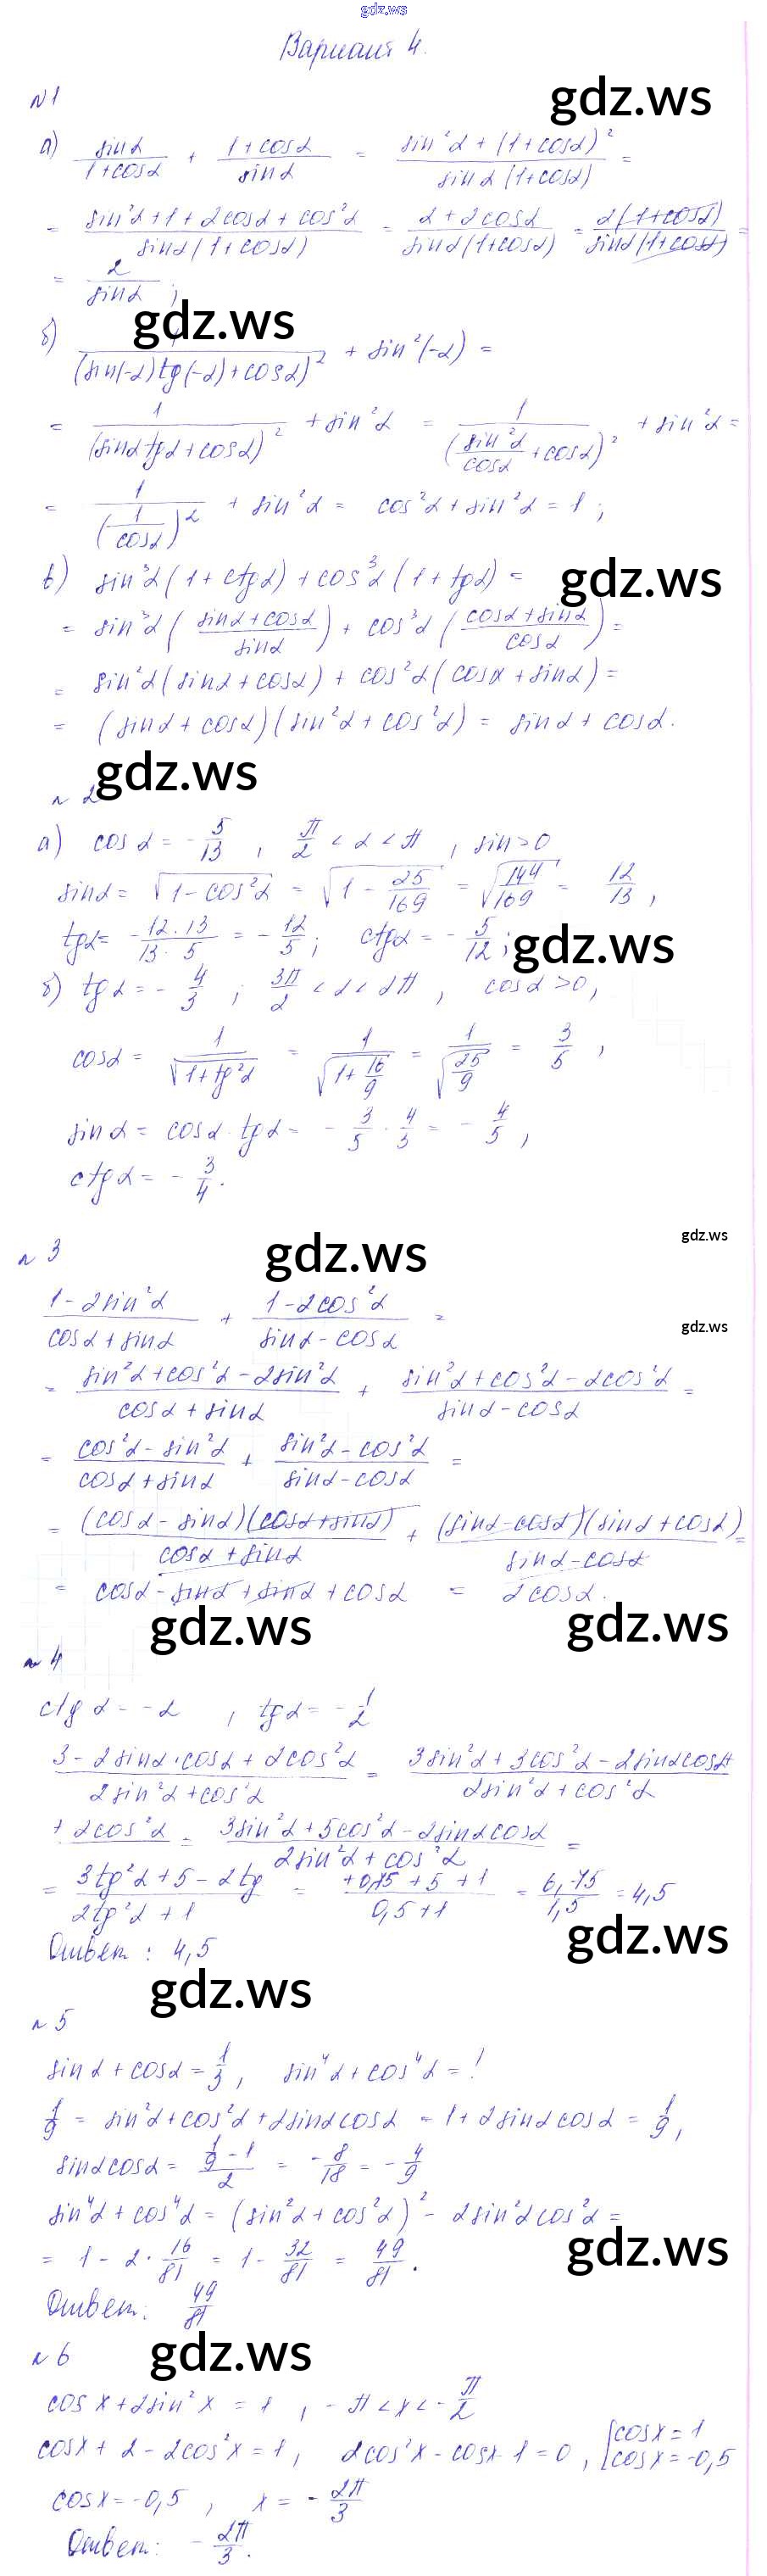 gdz.ws
Вариант 4.
№1
gdz.ws
а) sinα/(1+cosα) + (1+cosα)/sinα = (sin²α + (1+cosα)²)/(sinα(1+cosα)) =
= (sin²α+1+2cosα+cos²α)/(sinα(1+cosα)) = (2+2cosα)/(sinα(1+cosα)) = 2(1+cosα)/(sinα(1+cosα)) =
= 2/sinα ;
gdz.ws
б) 1/(sin(-α)tg(-α)+cosα)² + sin²(-α) =
= 1/(sinαtgα+cosα)² + sin²α = 1/(sin²α/cosα + cosα)² + sin²α =
= 1/(1/cosα)² + sin²α = cos²α + sin²α = 1 ;
в) sin³α(1+ctgα) + cos³α(1+tgα) =
gdz.ws
= sin³α((sinα+cosα)/sinα) + cos³α((cosα+sinα)/cosα) =
= sin²α(sinα+cosα) + cos²α(cosα+sinα) =
= (sinα+cosα)(sin²α+cos²α) = sinα + cosα.
gdz.ws
№ 2
а) cosα = -5/13 , π/2 < α < π , sin>0
sinα = √(1-cos²α) = √(1 - 25/169) = √(144/169) = 12/13 ,
tgα = -(12·13)/(13·5) = -12/5 ; ctgα = -5/12 ;
gdz.ws
б) tgα = -4/3 ; 3π/2 < α < 2π , cosα>0,
cosα = 1/√(1+tg²α) = 1/√(1+16/9) = 1/√(25/9) = 3/5 ,
sinα = cosα·tgα = -3/5 · 4/3 = -4/5 ,
ctgα = -3/4.
gdz.ws
№ 3
gdz.ws
(1-2sin²α)/(cosα+sinα) + (1-2cos²α)/(sinα-cosα) =
gdz.ws
= (sin²α+cos²α-2sin²α)/(cosα+sinα) + (sin²α+cos²α-2cos²α)/(sinα-cosα) =
= (cos²α-sin²α)/(cosα+sinα) + (sin²α-cos²α)/(sinα-cosα) =
= (cosα-sinα)(cosα+sinα)/(cosα+sinα) + (sinα-cosα)(sinα+cosα)/(sinα-cosα) =
= cosα-sinα+sinα+cosα = 2cosα.
gdz.ws
gdz.ws
№ 4
ctgα = -2 , tgα = -1/2
(3-2sinα·cosα+2cos²α)/(2sin²α+cos²α) = (3sin²α+3cos²α-2sinαcosα+
+2cos²α)/(2sin²α+cos²α) = (3sin²α+5cos²α-2sinαcosα)/(2sin²α+cos²α) =
= (3tg²α+5-2tg)/(2tg²α+1) = (+0,75+5+1)/(0,5+1) = 6,75/1,5 = 4,5
Ответ: 4,5
gdz.ws
gdz.ws
№ 5
sinα+cosα = 1/3 , sin⁴α+cos⁴α = !
1/9 = sin²α+cos²α+2sinαcosα = 1+2sinαcosα = 1/9 ,
sinαcosα = (1/9-1)/2 = -8/18 = -4/9
sin⁴α+cos⁴α = (sin²α+cos²α)² - 2sin²αcos²α =
= 1 - 2·16/81 = 1 - 32/81 = 49/81 .
gdz.ws
Ответ: 49/81
gdz.ws
№ 6
cosx+2sin²x = 1 , -π < x < -π/2
cosx+2-2cos²x = 1 , 2cos²x-cosx-1 = 0 , [cosx = 1
cosx = -0,5
cosx = -0,5 , x = -2π/3
Ответ: -2π/3.